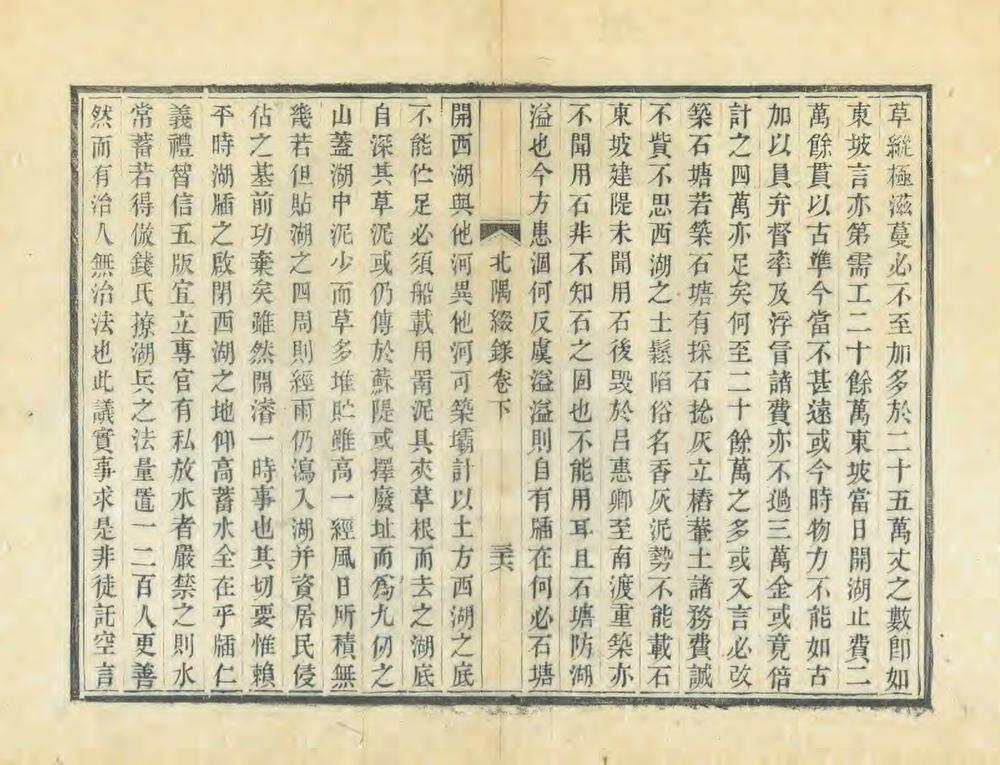 草縱極滋蔓必不至加多於二十五萬丈之數卽如
東坡言亦第需工二十餘萬東坡當日開湖止費二
萬餘貫以古準今當不甚遠或今時物力不能如古
加以員弁督率及浮冒諸費亦不過三萬金或竟倍
計之四萬亦足矣何至二十餘萬之多或又言必改
築石塘若築石塘有採石捻灰立樁輂土諸務費誠
不貲不思西湖之土鬆陷俗名香灰泥勢不能載石
東坡建隄未聞用石後毀於呂惠卿至南渡重築亦
不聞用石非不知石之固也不能用耳且石塘防湖
溢也今方患涸何反虞溢溢則自有牐在何必石塘
北隅綴錄卷下
三六
開西湖與他河異他河可築壩計以土方西湖之底
不能伫足必須船載用罱泥具夾草根而去之湖底
自深其草泥或仍傳於蘇隄或擇廢址而爲九仞之
山蓋湖中泥少而草多堆貯雖高一經風日所積無
幾若但貼湖之四周則經雨仍瀉入湖并資居民侵
佔之基前功棄矣雖然開濬一時事也其切要惟賴
平時湖牐之啟閉西湖之地仰高蓄水全在乎牐仁
義禮智信五版宜立專官有私放水者嚴禁之則水
常蓄若得倣錢氏撩湖兵之法量置一二百人更善
然而有治人無治法也此議實事求是非徒託空言